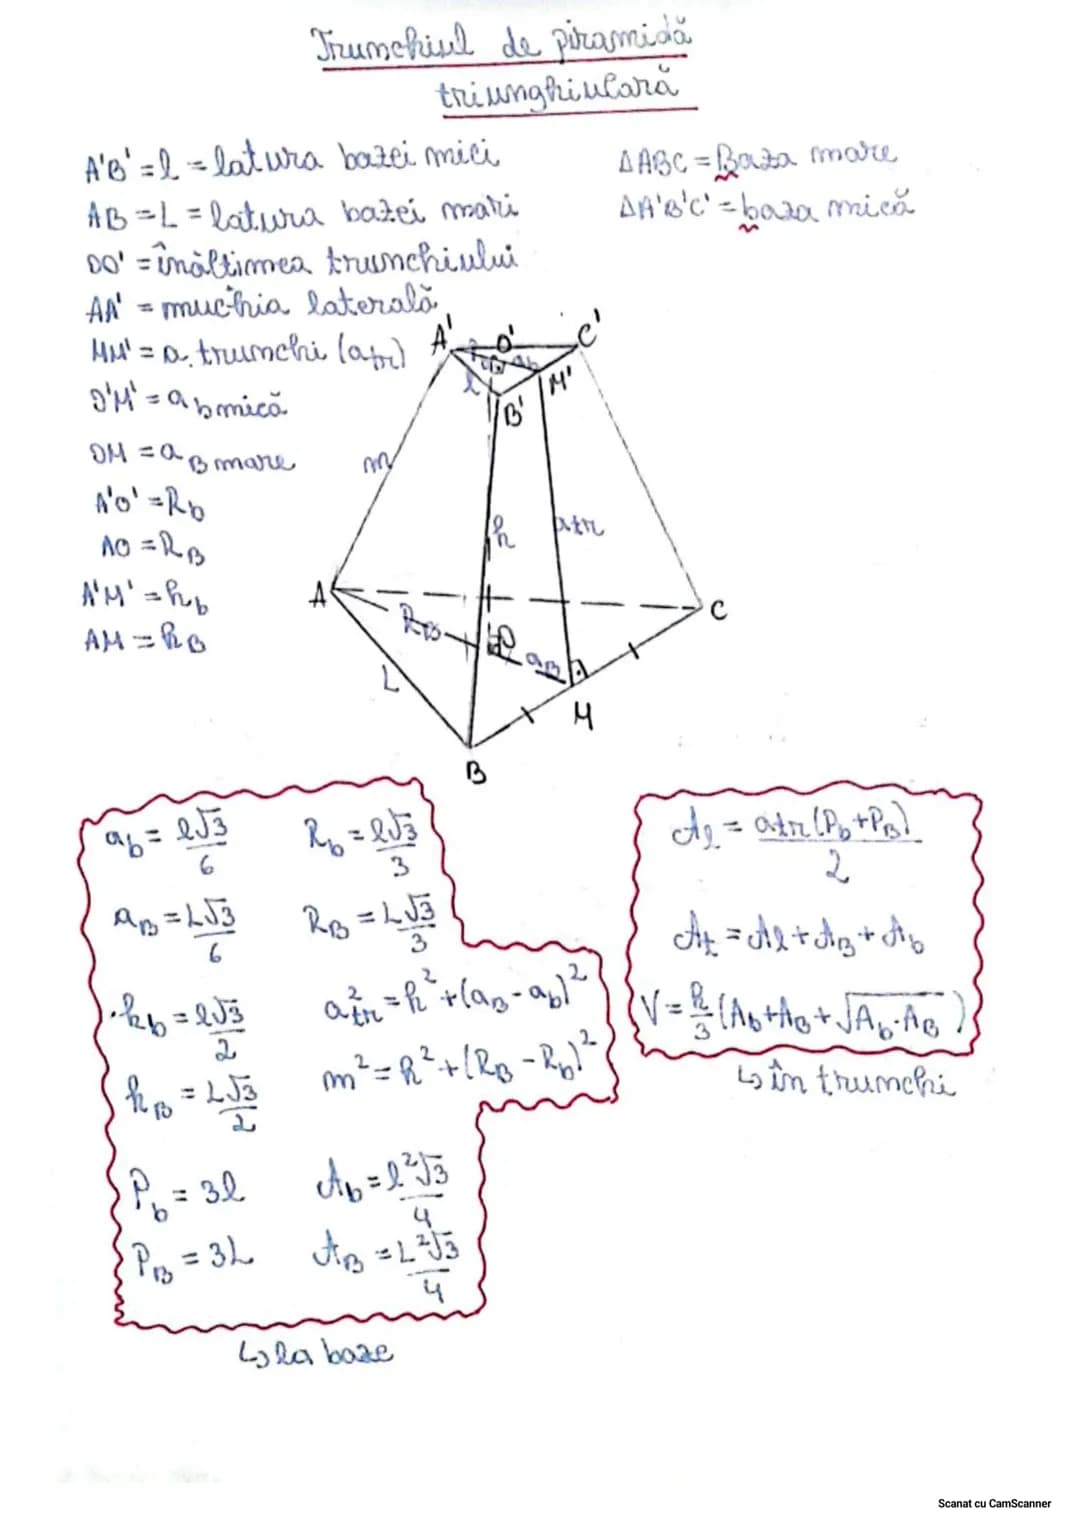 Trunchiul de piramidă
triunghiulară
A'B' = l = latura bazei mici
AB = L = latura bazei mari
OO' = înălțimea trunchiului
AA' = muchia laterală
MM' = a. trunchi (atr)
O'M' = a b mică
OM = a B mare
A'O' = Rb
AO = RB
A'M' = hb
AM = hB
ΔABC = Baza mare
ΔA'B'C' = baza mică
A'
O'
C'
ab
l
M'
B'
m
h
atr
A
RB
O
aB
C
L
M
B
ab = l√3/6
Rb = l√3/3
aB = L√3/6
RB = L√3/3
hb = l√3/2
a²tr = h² + (aB - ab)²
hB = L√3/2
m² = h² + (RB - Rb)²
Pb = 3l
Ab = l²√3/4
PB = 3L
AB = L²√3/4
↳ la baze
Al = atr(Pb + PB)/2
At = Al + AB + Ab
V = h/3 (Ab + AB + √Ab·AB)
↳ în trunchi
Scanat cu CamScanner